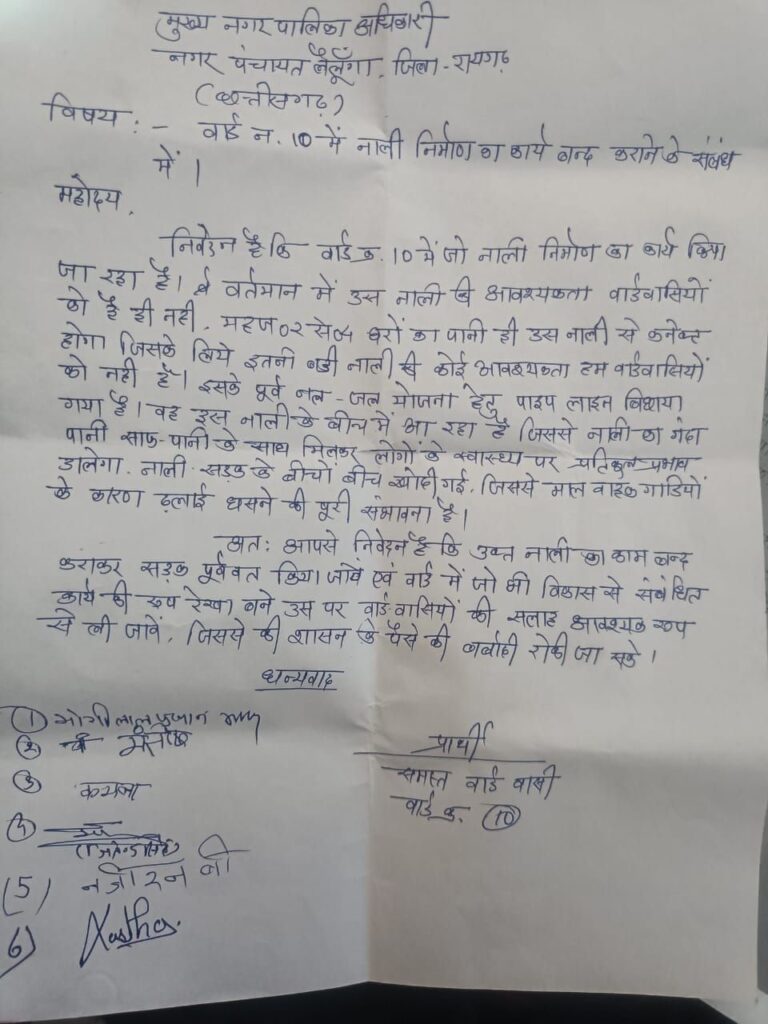 मुख्य नगर पालिका अधिकारी
नगर पंचायत लैलूँगा, जिला - रायगढ़
(छत्तीसगढ़)
विषय : - वार्ड न. 10 में नाली निर्माण का कार्य बन्द कराने के संबंध
में ।
महोदय,
निवेदन है कि वार्ड क्र. 10 में जो नाली निर्माण का कार्य किया
जा रहा है। वर्तमान में उस नाली की आवश्यकता वार्डवासियों
को है ही नही, महज 02 से 04 घरों का पानी ही उस नाली से कनेक्ट
होगा जिसके लिये इतनी बडी नाली की कोई आवश्यकता हम वार्डवासियों
को नही है। इसके पूर्व नल - जल योजना हेतु पाइप लाइन बिछाया
गया है। वह इस नाली के बीच में आ रहा है जिससे नाली का गंदा
पानी साफ-पानी के साथ मिलकर लोगों के स्वास्थ्य पर प्रतिकुल प्रभाव
डालेगा, नाली सड़क के बीचों बीच खोदी गई, जिससे माल वाहक गाडियों
के कारण ढ़लाई धसने की पूरी संभावना है।
अतः आपसे निवेदन है कि उक्त नाली का काम बन्द
कराकर सड़क पूर्ववत किया जावें एवं वार्ड में जो भी विकास से संबंधित
कार्य की रूप रेखा बने उस पर वार्डवासियों की सलाह आवश्यक रूप
से ली जावें, जिससे की शासन के पैसे की बर्बादी रोकी जा सके ।
धन्यवाद
प्रार्थी
समस्त वार्ड वासी
वार्ड क्र. 10
1
2
3
4
(5) नजीरन बी
6)